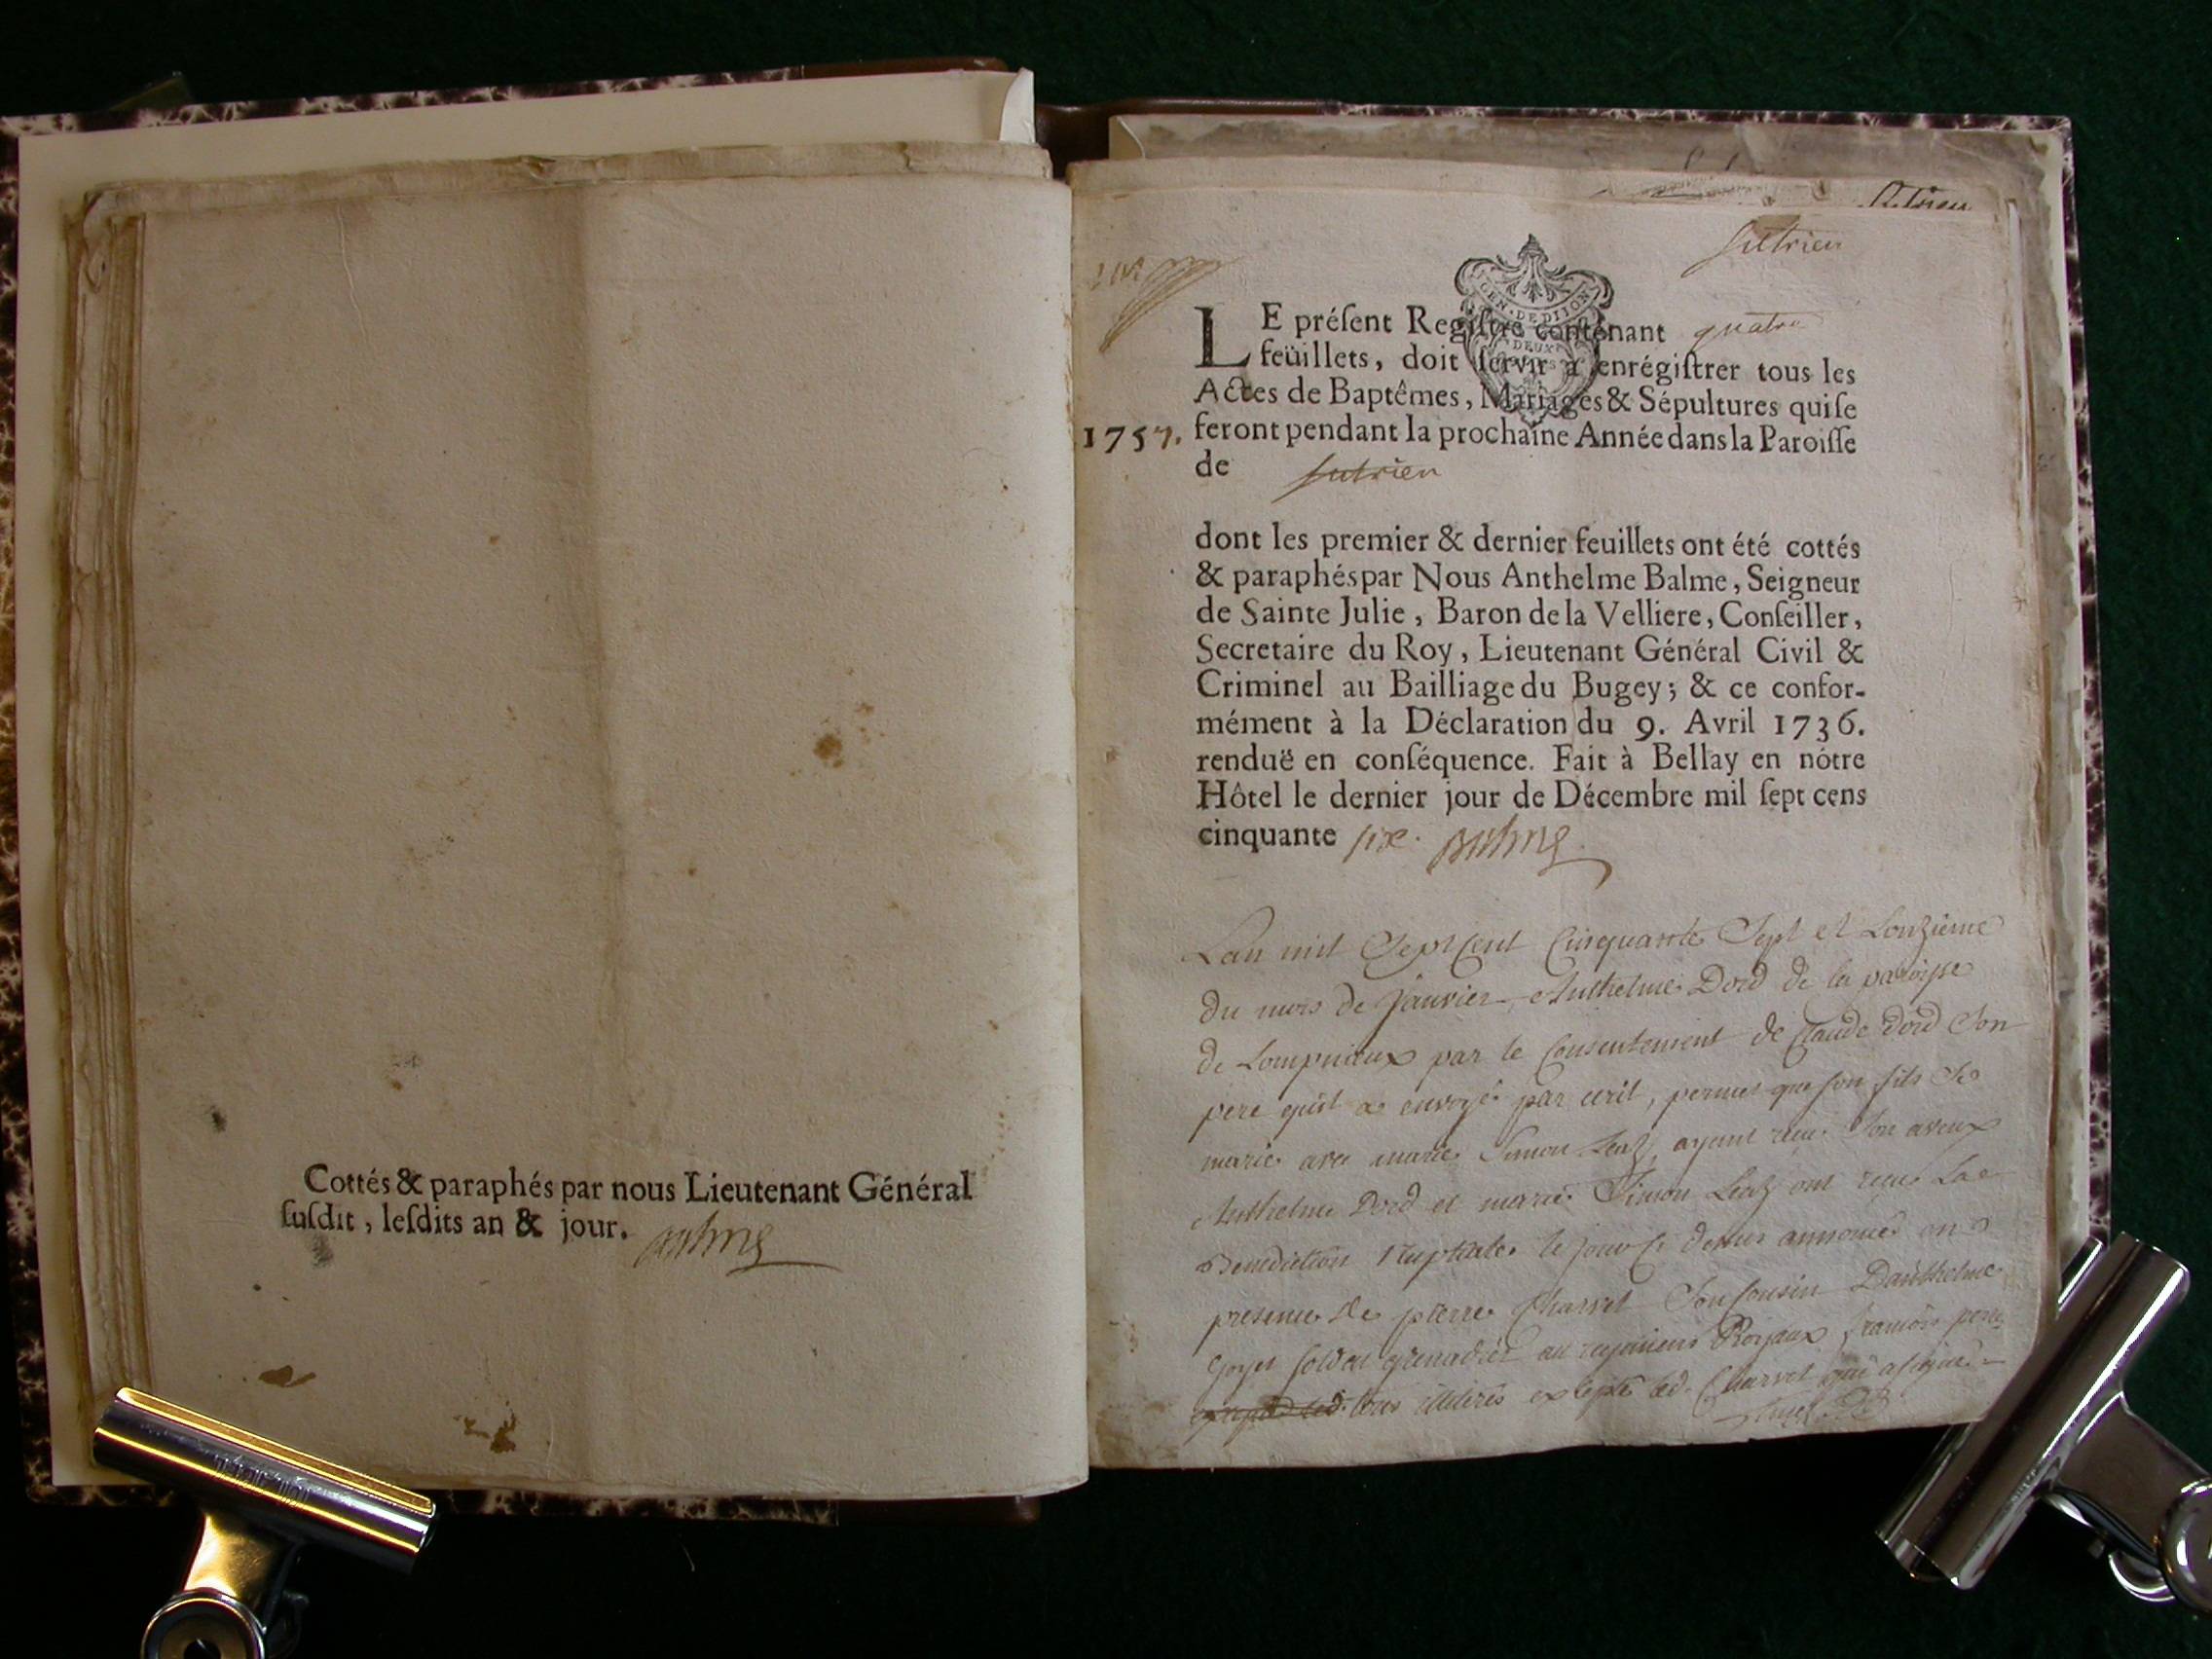 Cottés & paraphés par nous Lieutenant Général
ſuſdit, leſdits an & jour. Balme
Sutrieu
Sutrieu
GEN. DE DIJON
DEUX
LE préſent Regiſtre contenant quatre
feüillets, doit ſervir à enrégiſtrer tous les
Actes de Baptêmes, Mariages & Sépultures qui ſe
1757. feront pendant la prochaine Année dans la Paroiſſe
de Sutrieu
dont les premier & dernier feuillets ont été cottés
& paraphés par Nous Anthelme Balme, Seigneur
de Sainte Julie, Baron de la Velliere, Conſeiller,
Secretaire du Roy, Lieutenant Général Civil &
Criminel au Bailliage du Bugey; & ce confor-
mément à la Déclaration du 9. Avril 1736.
renduë en conſéquence. Fait à Bellay en nótre
Hôtel le dernier jour de Décembre mil ſept cens
cinquante six. Balme
Lan mil Sept Cent Cinquante Sept et Lonzieme
du mois de janvier Anthelme Dord de la paroisse
de Lompnieux par le Consentement de Claude Dord Son
pere quil a envoyé par ecrit, permet que son fils Se
marie avec marie Simon Leaz, ayant recu Son aveux
Anthelme Dord et marie Simon Leaz ont recu La
Benediction Nuptiale le jour Cy dessus annoncé en
presence de pierre Charvet Son Cousin Danthelme
Goyet soldat grenadier au regiment Royaux francois
tous illiterés excepté led. Charvet qui a signé